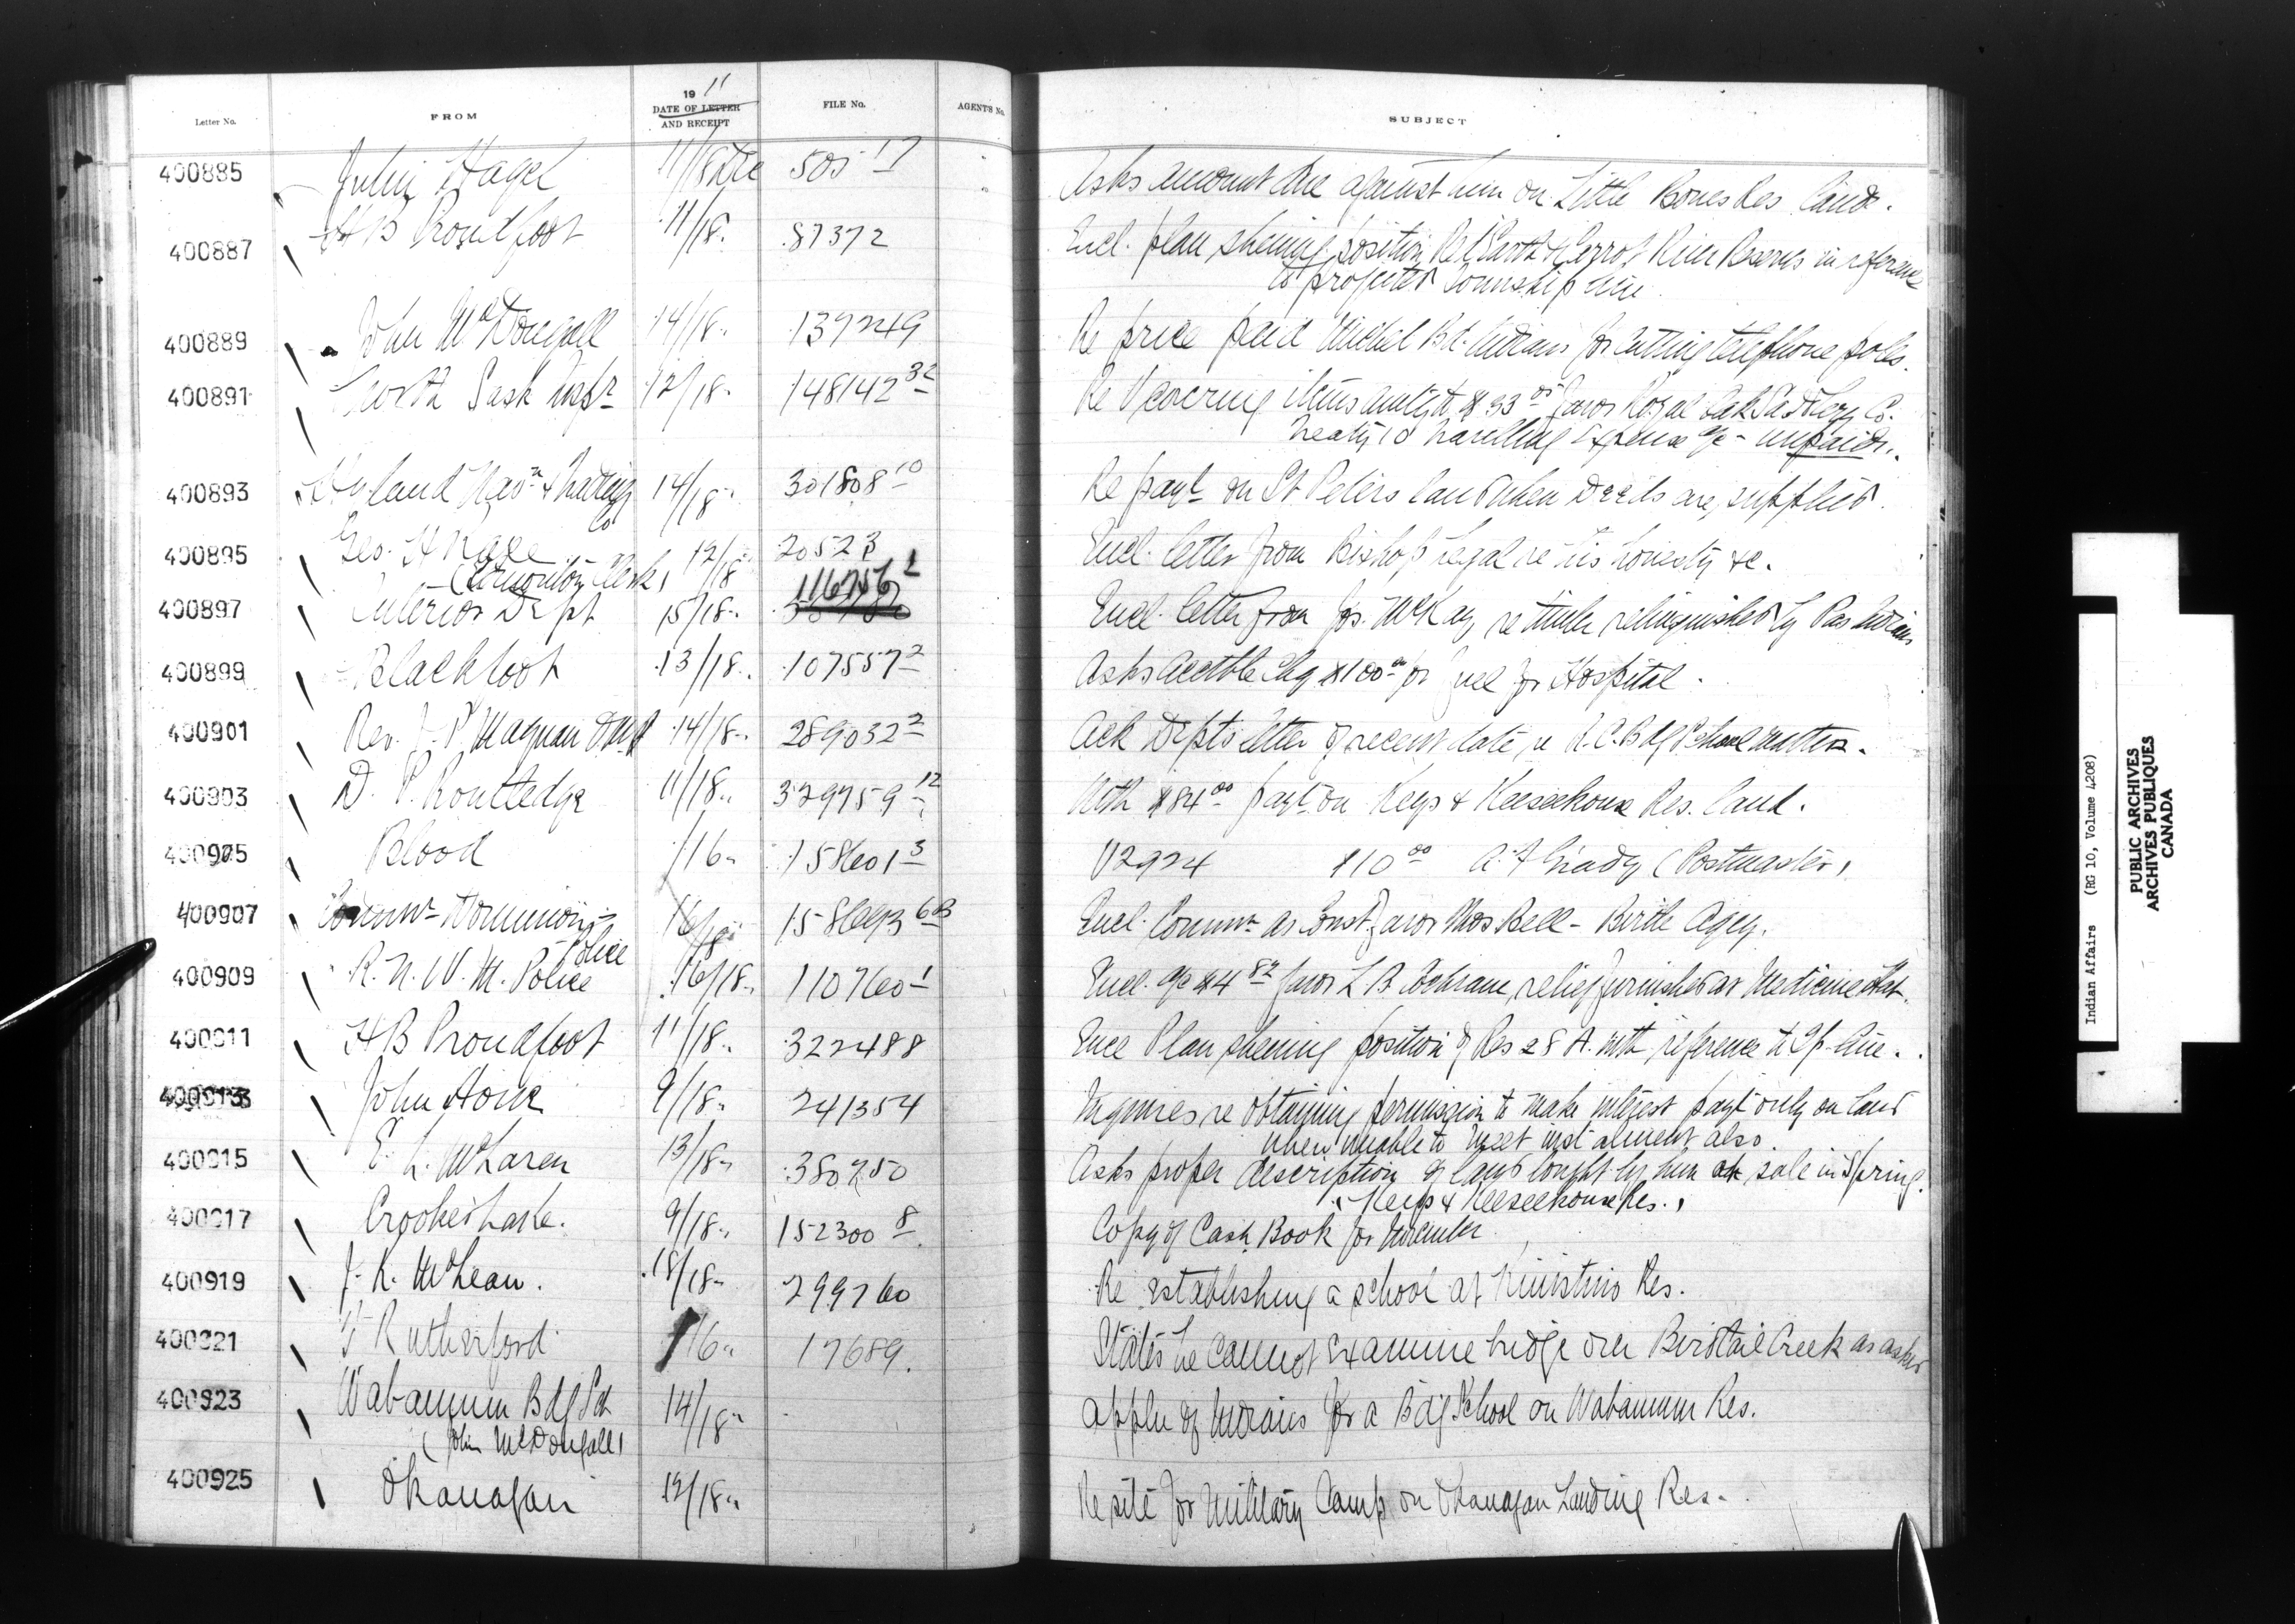 Letter No. FROM 19 11 DATE OF LETTER AND RECEIPT FILE No. AGENT'S No. SUBJECT
400885 John Hagel 11/18 Dec 505 17 Asks amount due against him on Little Bones Res land.
400887 H B Proudfoot 11/18. 87372 Encl. plan shewing position Red Earth & Carrot River Reserves in reference
to projected Township line
400889 John McDougall 14/18. 139249 Re price paid Michel Bd. Indians for cutting telephone poles.
400891 North Sask Inspr 12/18. 148142 32 Re V covering items amtg to $33 05 favor Royal Oak Saddlery Co.
Treaty 10 travelling expense a/c - unpaid.
400893 Hyland Navn & Trading Co 14/18. 301808 10 Re payt on St Peters land when Deeds are supplied.
400895 Geo. H Race (Edmonton Clerk) 12/18 20523 Encl. letter from Bishop Legal re his honesty &c.
400897 Interior Dept 15/18. 116756 2 Encl. letter from Jos. McKay, re timber relinquished by Pas Indians
400899 Blackfoot 13/18. 107557 2 Asks Acctble Chq $100 00 for fuel for Hospital.
400901 Rev. J. P. Magnan OMI 14/18. 289032 2 Ack Depts letter of recent date, re R.C. Bdg School matters.
400903 D. P. Routledge 11/18. 329759 12 With $84 00 payt on Keys & Keeseekouse Res. land.
400905 Blood /16. 158601 3 V2924 $10 00 A. F Grady (Postmaster)
400907 Commr Dominion Police 16/18 Encl. Commn as Const. favor Thos Bell - Birtle Agcy.
400909 R. N. W. M. Police 16/18. 110760 1 Encl. a/c $4 82 favor L B Cochrane, relief furnished at Medicine Hat.
400911 H B Proudfoot 11/18. 322488 Encl Plan shewing position of Res 28 A. with reference to Tp-line.
400913 John Howe 9/18. 241354 Inquires re obtaining permission to make interest payt only on land
when unable to meet instalment also.
400915 E. L. McLaren 13/18. 380750 Asks proper description of land bought by him at sale in Spring.
Keys & Keeseekouse Res.
400917 Crooked Lake. 9/18. 152300 8 Copy of Cash Book for November
400919 J. K. McLean. 18/18. 299760 Re establishing a school at Kinistino Res.
400921 Rutherford /16. 17689. States he cannot examine bridge over Birdtail Creek as asked
400923 Wabamum Bdg Sch (John McDougall) 14/18. Appln of Indians for a Bdg School on Wabamum Res.
400925 Okanagan 12/18. Re site for Military Camp on Okanagan Landing Res.
Indian Affairs (RG 10, Volume 4208)
PUBLIC ARCHIVES
ARCHIVES PUBLIQUES
CANADA